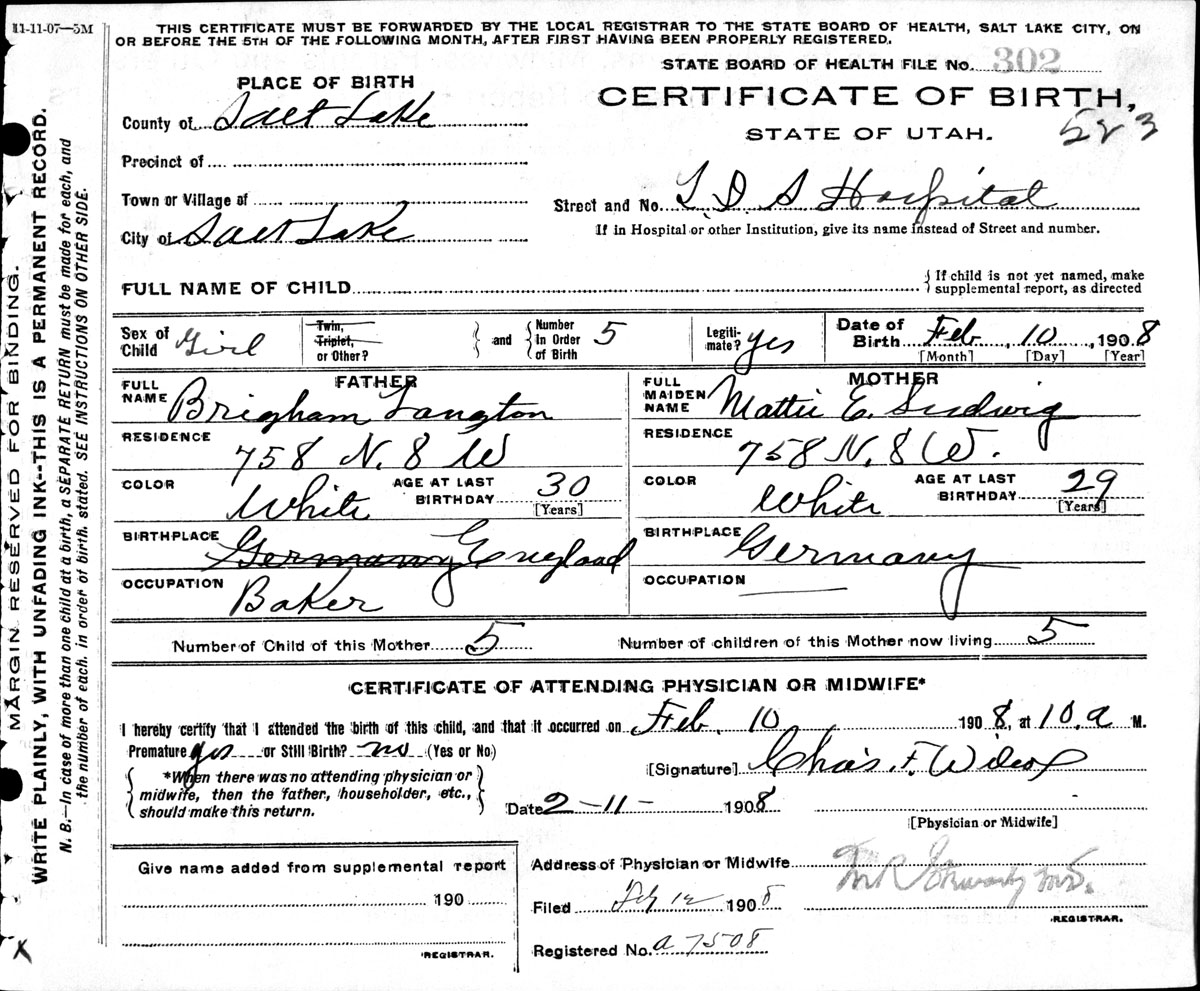 11-11-07—5M
THIS CERTIFICATE MUST BE FORWARDED BY THE LOCAL REGISTRAR TO THE STATE BOARD OF HEALTH, SALT LAKE CITY, ON
OR BEFORE THE 5TH OF THE FOLLOWING MONTH, AFTER FIRST HAVING BEEN PROPERLY REGISTERED.
STATE BOARD OF HEALTH FILE No. 302
PLACE OF BIRTH
CERTIFICATE OF BIRTH,
STATE OF UTAH.
523
County of Salt Lake
Precinct of
Town or Village of
City of Salt Lake
Street and No. L.D.S Hospital
If in Hospital or other Institution, give its name instead of Street and number.
FULL NAME OF CHILD
{ If child is not yet named, make
supplemental report, as directed
Sex of Child Girl
Twin, Triplet, or Other?
and
Number In Order of Birth 5
Legitimate? yes
Date of Birth Feb 10, 1908
[Month] [Day] [Year]
FATHER
FULL NAME Brigham Langton
RESIDENCE 758 N. 8 W
COLOR White
AGE AT LAST BIRTHDAY 30
[Years]
BIRTHPLACE Germany England
OCCUPATION Baker
MOTHER
FULL MAIDEN NAME Mattie E. Ludwig
RESIDENCE 758 N. 8 W.
COLOR White
AGE AT LAST BIRTHDAY 29
[Years]
BIRTHPLACE Germany
OCCUPATION
Number of Child of this Mother 5
Number of children of this Mother now living 5
CERTIFICATE OF ATTENDING PHYSICIAN OR MIDWIFE*
I hereby certify that I attended the birth of this child, and that it occurred on Feb. 10 1908, at 10 a M.
Premature yes or Still Birth? no (Yes or No)
*When there was no attending physician or
midwife, then the father, householder, etc.,
should make this return.
[Signature] Chas. F. Wilcox
Date 2-11- 1908
[Physician or Midwife]
Give name added from supplemental report
190
REGISTRAR.
Address of Physician or Midwife
Filed Feb 12 1908
REGISTRAR.
Registered No. a 7508
MARGIN RESERVED FOR BINDING.
WRITE PLAINLY, WITH UNFADING INK--THIS IS A PERMANENT RECORD.
N. B.—In case of more than one child at a birth, a SEPARATE RETURN must be made for each, and
the number of each, in order of birth, stated. SEE INSTRUCTIONS ON OTHER SIDE.
X